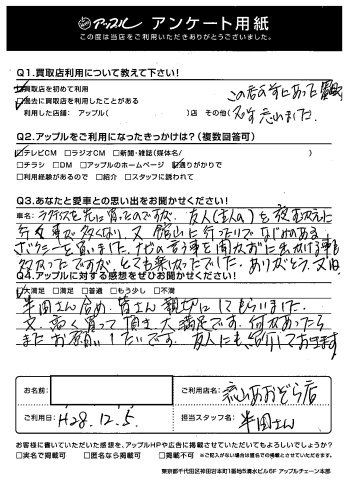 買取店 アップル アンケート用紙
この度は当店をご利用いただきありがとうございました。
Q1.買取店利用について教えて下さい!
買取店を初めて利用
過去に買取店を利用したことがある
利用した店舗: アップル( )店 その他(
この店の前にあった
忘れました。
Q2.アップルをご利用になったきっかけは?(複数回答可)
テレビCM □ラジオCM □新聞・雑誌(媒体名/ )
□チラシ □DM □アップルのホームページ 通りがかりで
□利用経験があるので □紹介 □スタッフに誘われて
Q3.あなたと愛車との思い出をお聞かせください!
車名:
行く事が多くなり、又館山に行ったりで
を買いました。
多かったですがとても楽しかったでした。ありがとう。
Q4.アップルに対する感想をぜひお聞かせください!
大満足 □満足 □普通 □もう少し □不満
半田さん含め、皆さん親切にしてもらいました。
又、高く買って頂き大満足です。何かあったら
またお願いしたいです。友人にも、紹介しておきます
お名前:
ご利用店名: 流山おおぞら店
ご利用日: H28.12.5
担当スタッフ名: 半田さん
お客様に書いていただいた感想を、アップルHPや広告に掲載させていただいてもよろしいでしょうか?
□実名で掲載可 □匿名なら掲載可 □掲載不可 ※ご記入がない場合は匿名での掲載とさせていただきます。
東京都千代田区神田岩本町1番地5清水ビル6F アップルチェーン本部